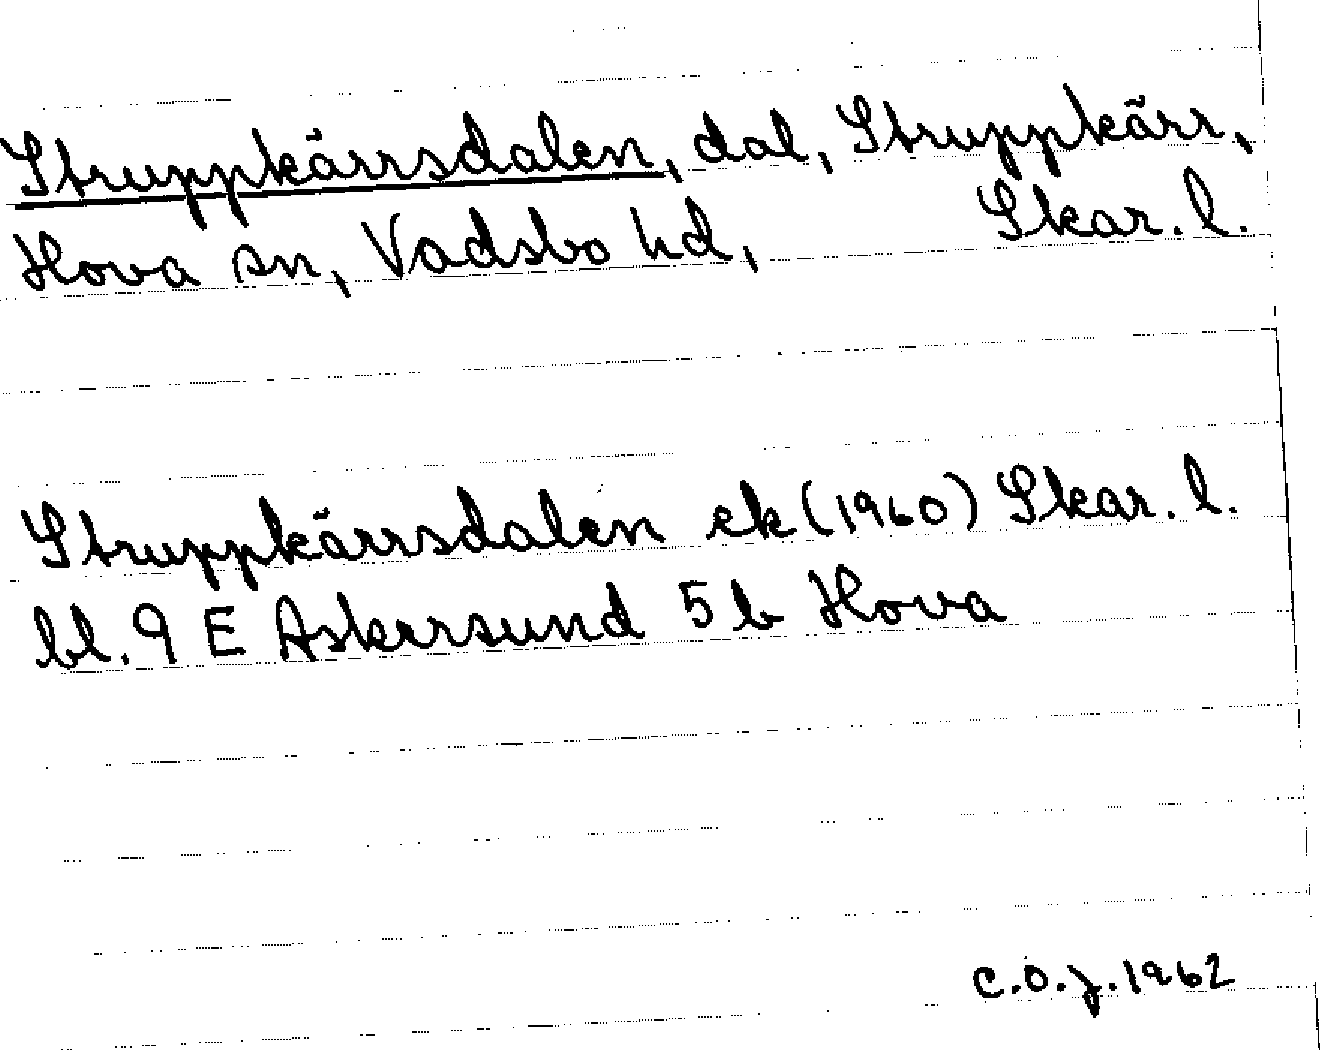 Struppkärrsdalen, dal, Struppkärr,
Hova sn, Vadsbo hd, Skar. l.
Struppkärrsdalen ek (1960) Skar. l.
bl. 9 E Askersund 5 b Hova
C.O.J. 1962